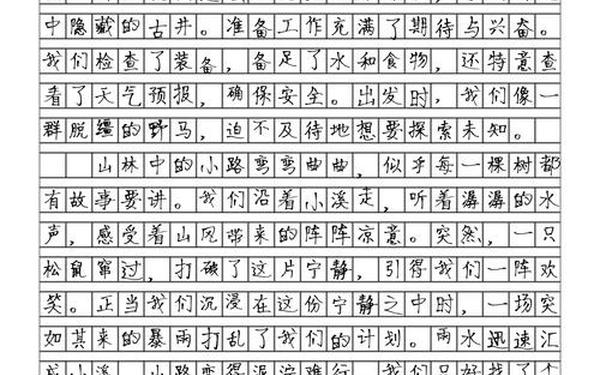 中隐藏的古井。准备工作充满了期待与兴奋。
我们检查了装备，备足了水和食物，还特意查
看了天气预报，确保安全。出发时，我们像一
群脱缰的野马，迫不及待地想要探索未知。
山林中的小路弯弯曲曲，似乎每一棵树都
有故事要讲。我们沿着小溪走，听着潺潺的水
声，感受着山风带来的阵阵凉意。突然，一只
松鼠窜过，打破了这片宁静，引得我们一阵欢
笑。正当我们沉浸在这份宁静之中时，一场突
如其来的暴雨打乱了我们的计划。雨水迅速汇
成小溪，小路变得泥泞难行，我们只好找了个